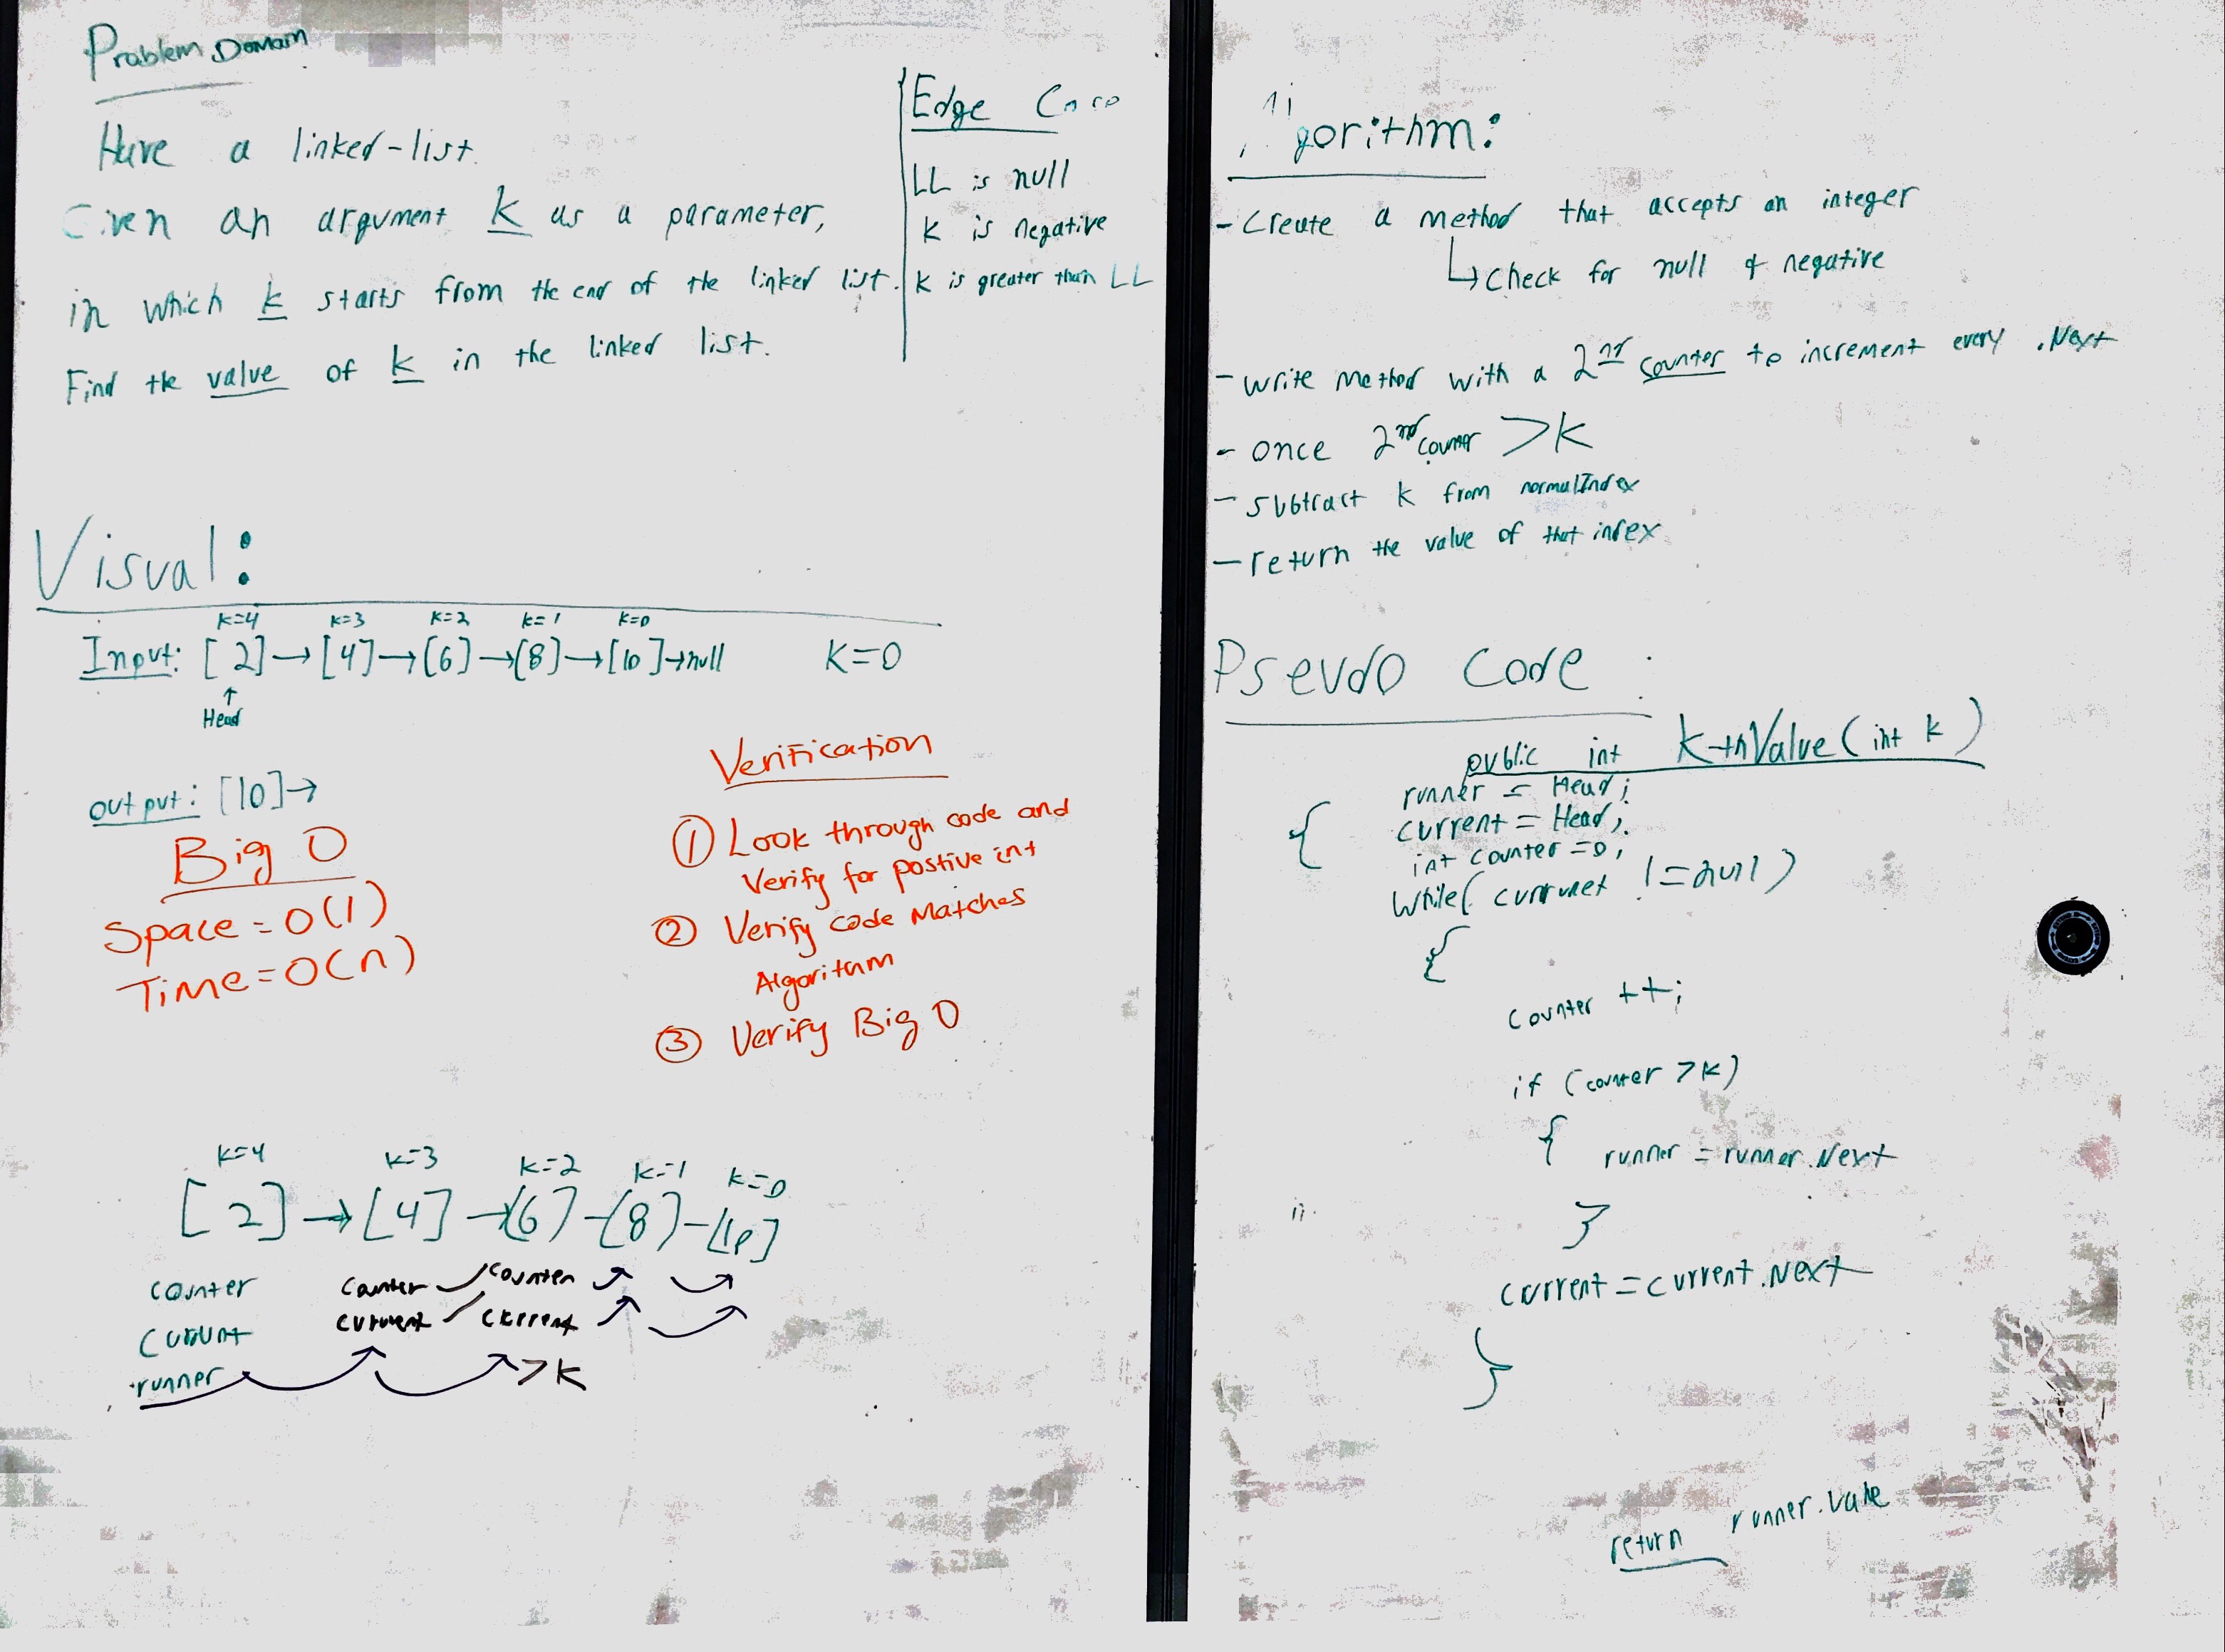 Problem Domain
Have a linked-list.
Given an argument k as a parameter,
in which k starts from the end of the linked list.
Find the value of k in the linked list.
Edge Case
LL is null
k is negative
k is greater than LL
Visual:
k=4 k=3 k=2 k=1 k=0
Input: [2]→[4]→[6]→[8]→[10]→null K=0
↑
Head
output: [10]→
Big O
Space = O(1)
Time = O(n)
Verification
① Look through code and
Verify for postive int
② Verify code Matches
Algorithm
③ Verify Big O
k=4 k=3 k=2 k=1 k=0
[2]→[4]→[6]-[8]-[10]
counter counter counter
current current current
runner >K
Algorithm:
- Create a method that accepts an integer
↳ Check for null & negative
- write method with a 2nd counter to increment every .Next
- once 2nd counter >K
- subtract k from normalIndex
- return the value of that index
Psevdo Code:
public int KthValue(int k)
{ runner = Head;
current = Head;
int counter = 0;
while( current != null )
{
counter ++;
if (counter >k)
{ runner = runner.Next
}
current = current.Next
}
return runner.value